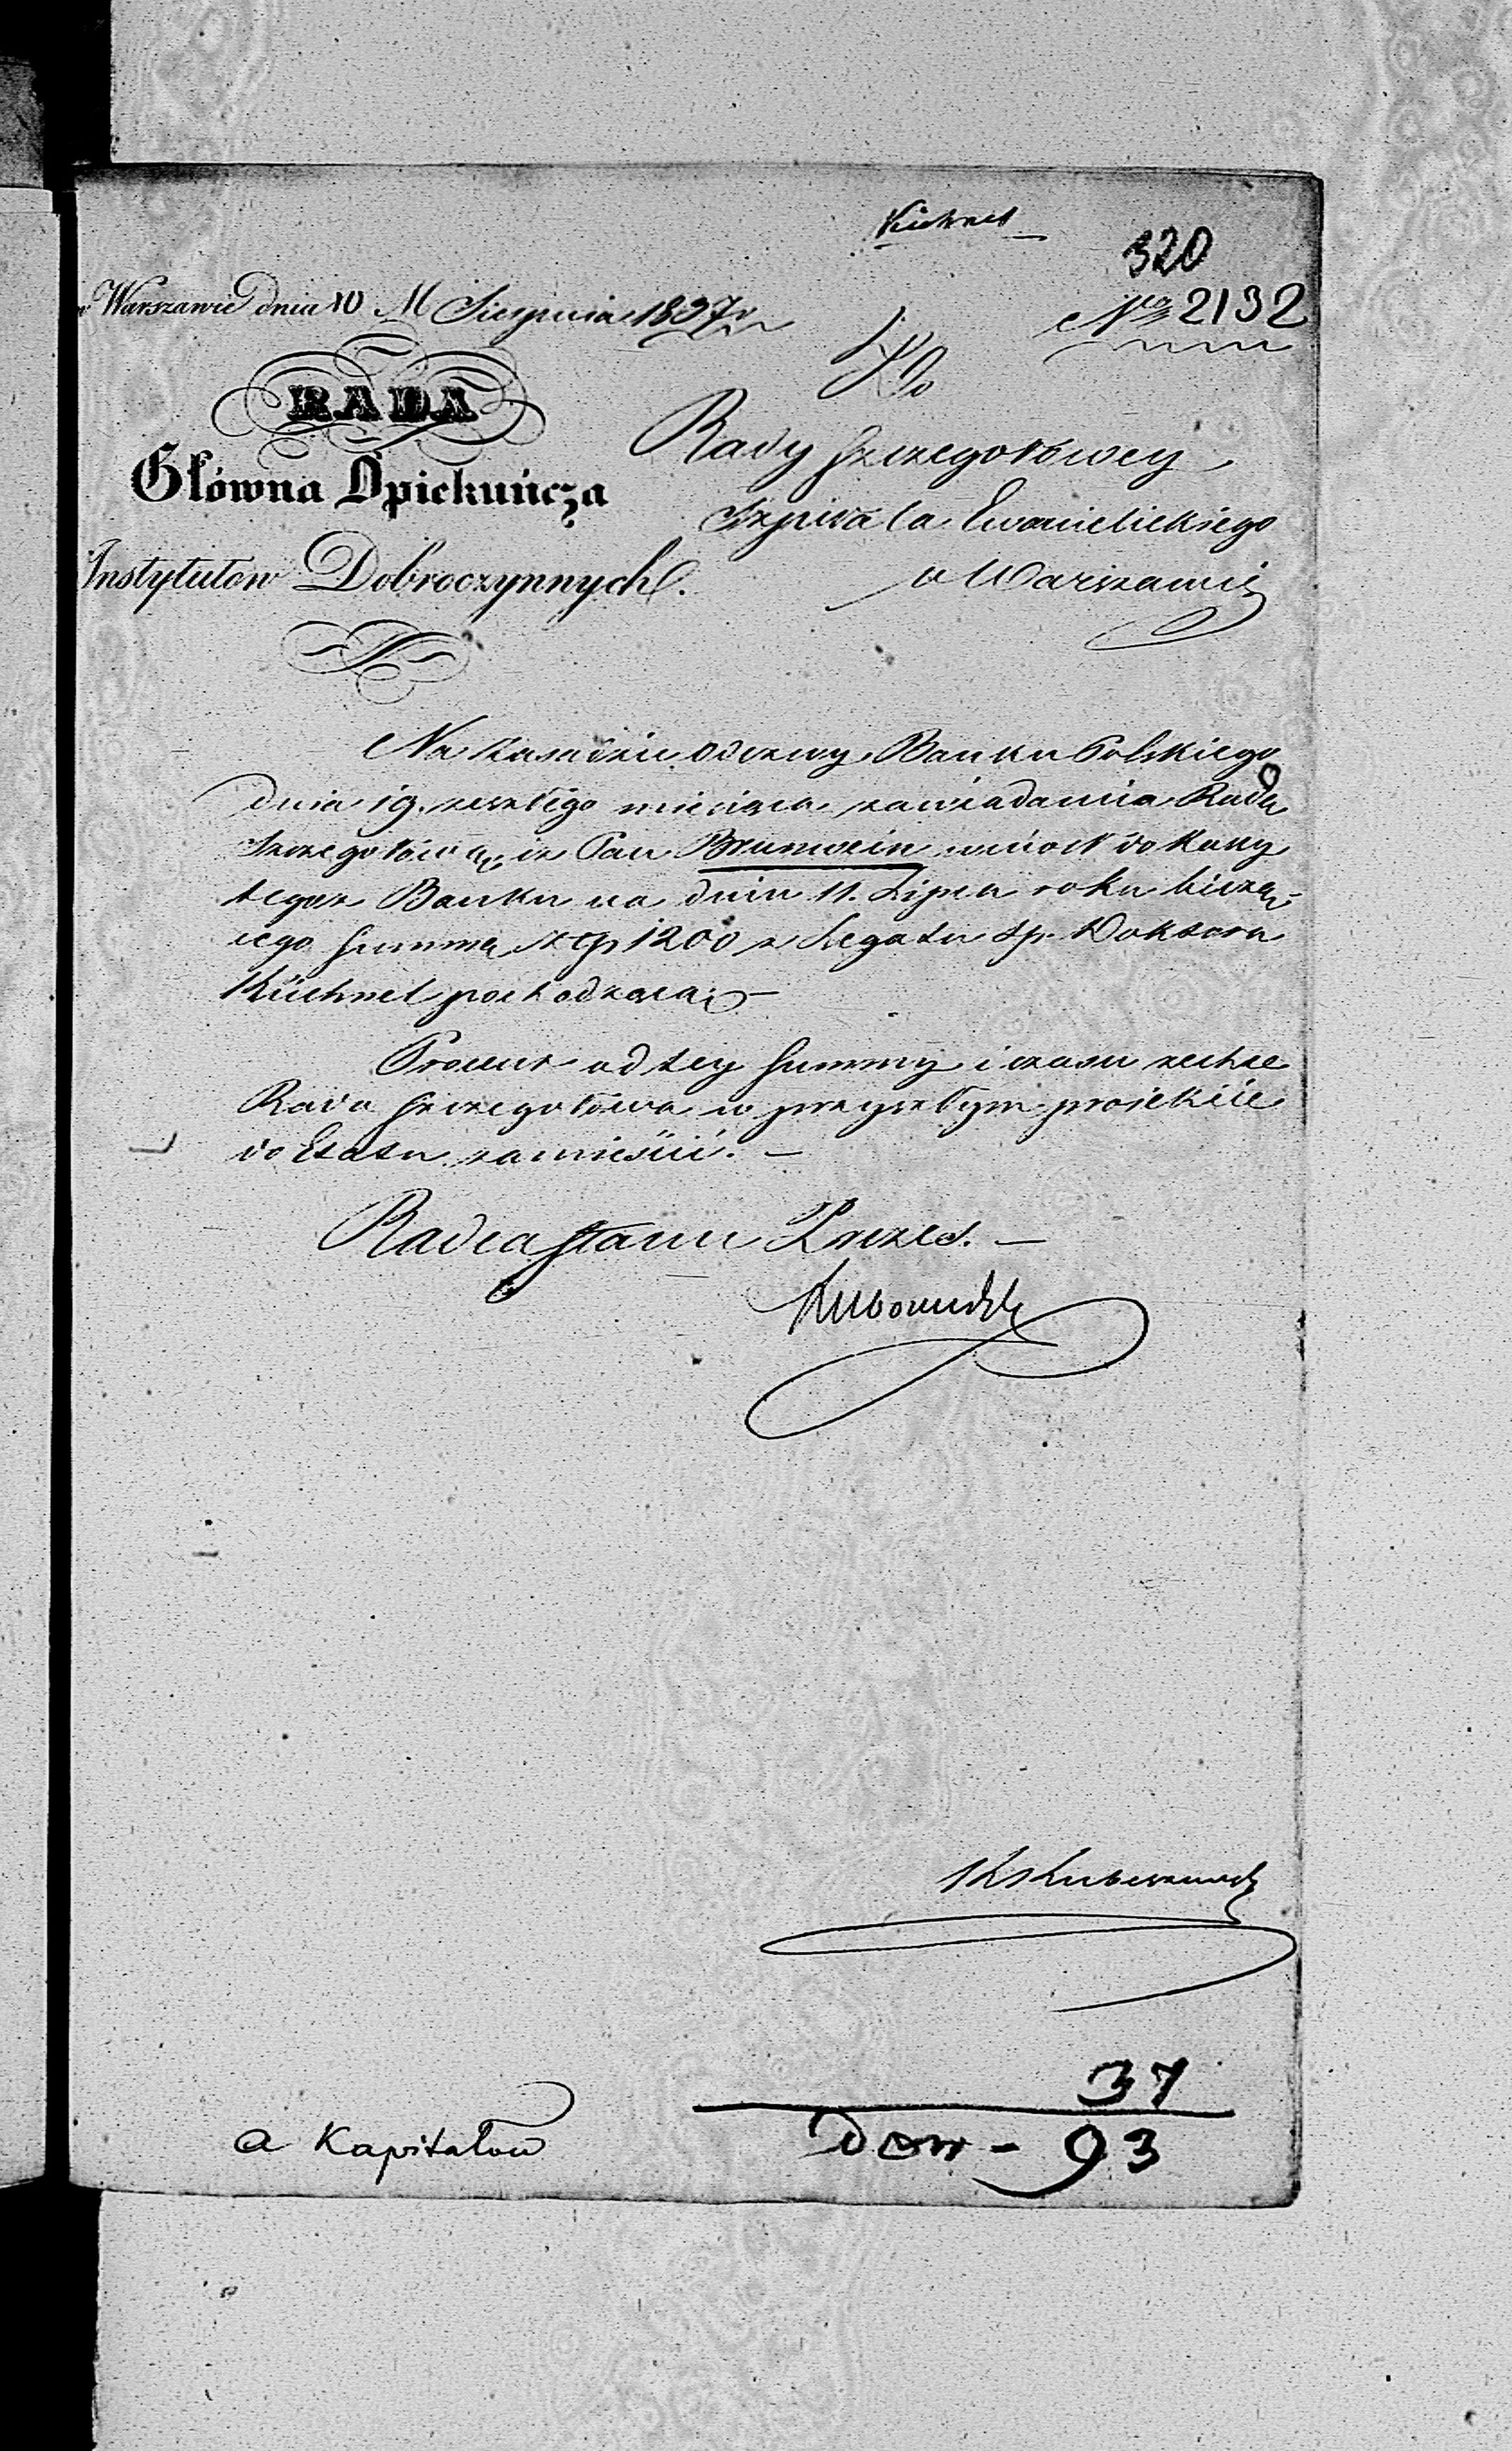 Küchnel
320
w Warszawie dnia 10 M Sierpnia 1837 r
No 2132
RADA
Główna Opiekuńcza
Instytutów Dobroczynnych.
Do
Rady Szczegółowey
Szpitala Ewanielickiego
w Warszawie
Na zasadzie odezwy Banku Polskiego
dnia 19. zeszłego miesiąca zawiadamia Rada
Szczegółową, iż Pan Brunwein wniósł do Kassy
tegoż Banku na dniu 11. Lipca roku bieżą-
cego summę złp 1200 z Legatu śp. Doktora
Küchnel pochodzącą. —
Procent od tey summy i czasu zechce
Rada Szczegółowa w przyszłym projekcie
do Etatu zamieścić. —
Radca Stanu Prezes. —
a Kapitałów
37
Dow - 93